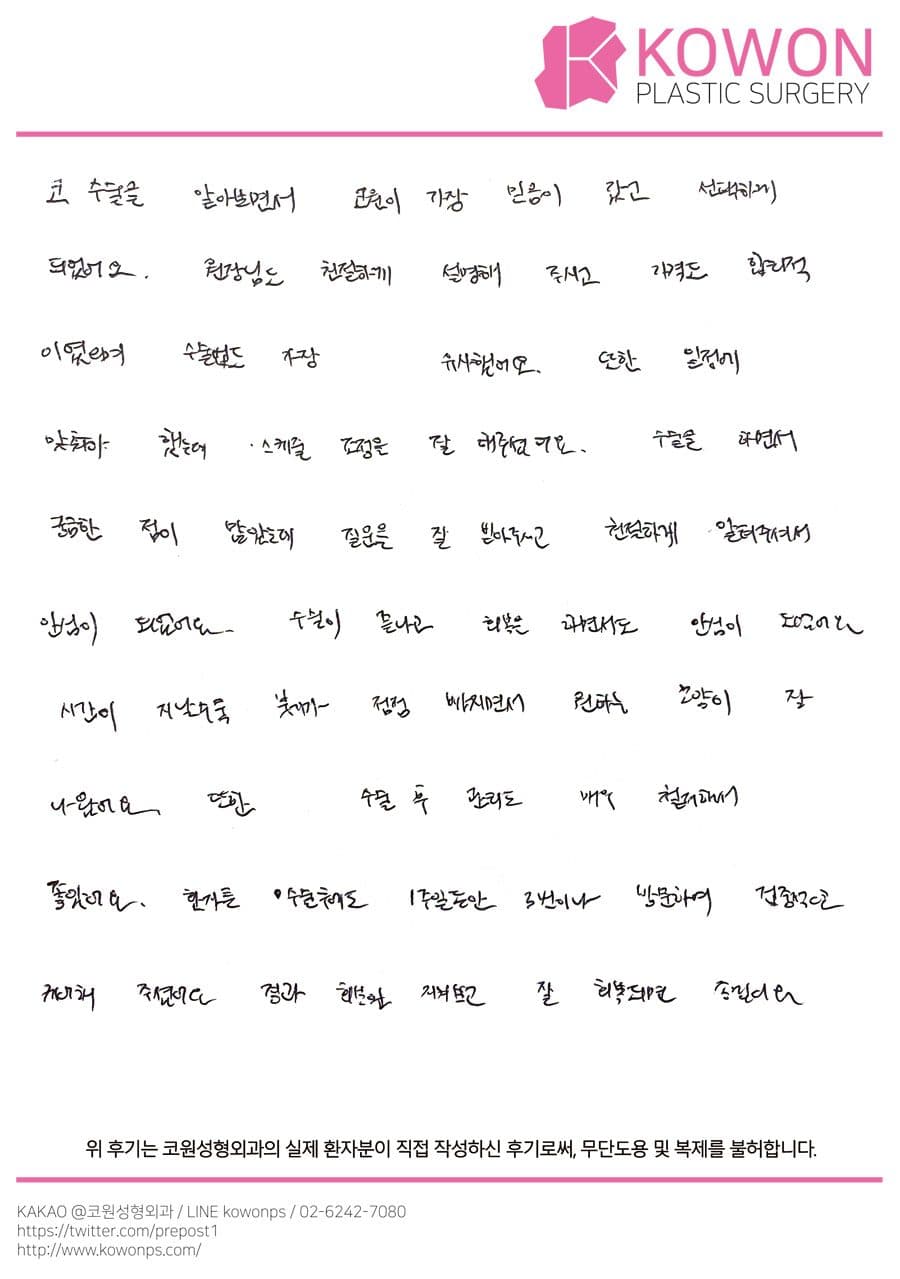 KOWON
PLASTIC SURGERY
코 수술을 알아보면서 코원이 가장 믿음이 갔고 선택하게
되었어요. 원장님도 친절하게 설명해 주시고 가격도 합리적
이였으며 수술법도 가장 유사했어요. 또한 일정에
맞춰야 했는데 스케줄 조정을 잘 해주셨어요. 수술을 하면서
궁금한 점이 많았는데 질문을 잘 받아주시고 친절하게 알려주셔서
안심이 되었어요. 수술이 끝나고 회복은 안심이 되었어요
시간이 지날수록 붓기가 점점 빠지면서 원하는 모양이 잘
나왔어요 또한 수술 후 관리도 매우 철저해서
좋았어요. 환자를 1주일동안 3번이나 방문하여
케어해 주셨어요 경과 지켜보고 잘 회복되면 좋겠어요
위 후기는 코원성형외과의 실제 환자분이 직접 작성하신 후기로써, 무단도용 및 복제를 불허합니다.
KAKAO @코원성형외과 / LINE kowonps / 02-6242-7080
https://twitter.com/prepost1
http://www.kowonps.com/